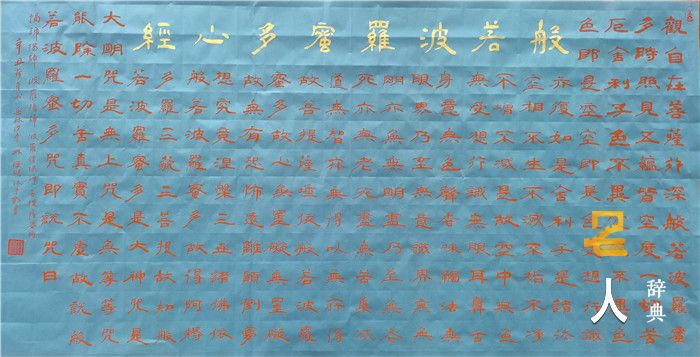 般若波羅蜜多心經
觀自在菩薩行深般若波羅蜜
多時照見五蘊皆空度一切
厄舍利子色不異不異色
色即是空空即是想行識
亦復如是舍利子是諸法
空相不生不滅不垢不淨
不增不減是故空中無色
無受想行識無眼耳鼻舌
身意無色聲香味觸法無
眼界乃至無意識界無無
明亦無無明盡乃至無老
死亦無老死盡無苦集滅
道無智亦無得以無所得
故菩提薩埵依般若波羅
蜜多故心無罣礙無罣礙
故無有恐怖遠離顛倒夢
想究竟涅槃三世諸佛依
般若波羅蜜多故得阿耨
多羅三藐三菩提故知般
若波羅蜜多是大神咒是
大明咒是無上咒是無等等咒
能除一切苦真實不虛故說般
若波羅蜜多咒即說咒曰
揭諦揭諦 波羅揭諦 波羅僧揭諦 菩提薩婆訶
辛丑年
人
辞典